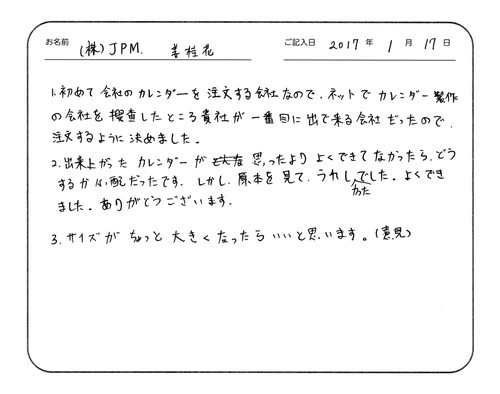 お名前 (株)JPM. 姜桂花 ご記入日 2017年1月17日
1.初めて会社のカレンダーを注文する会社なので、ネットでカレンダー製作
の会社を捜査したところ貴社が一番目に出で来る会社だったので、
注文するように決めました。
2.出来上がったカレンダーが思ったよりよくできてなかったら、どう
するか心配だったです。しかし、原本を見て、うれしかったでした。よくでき
ました。ありがどうございます。
3.サイズがちょっと大きくなったらいいと思います。(意見)